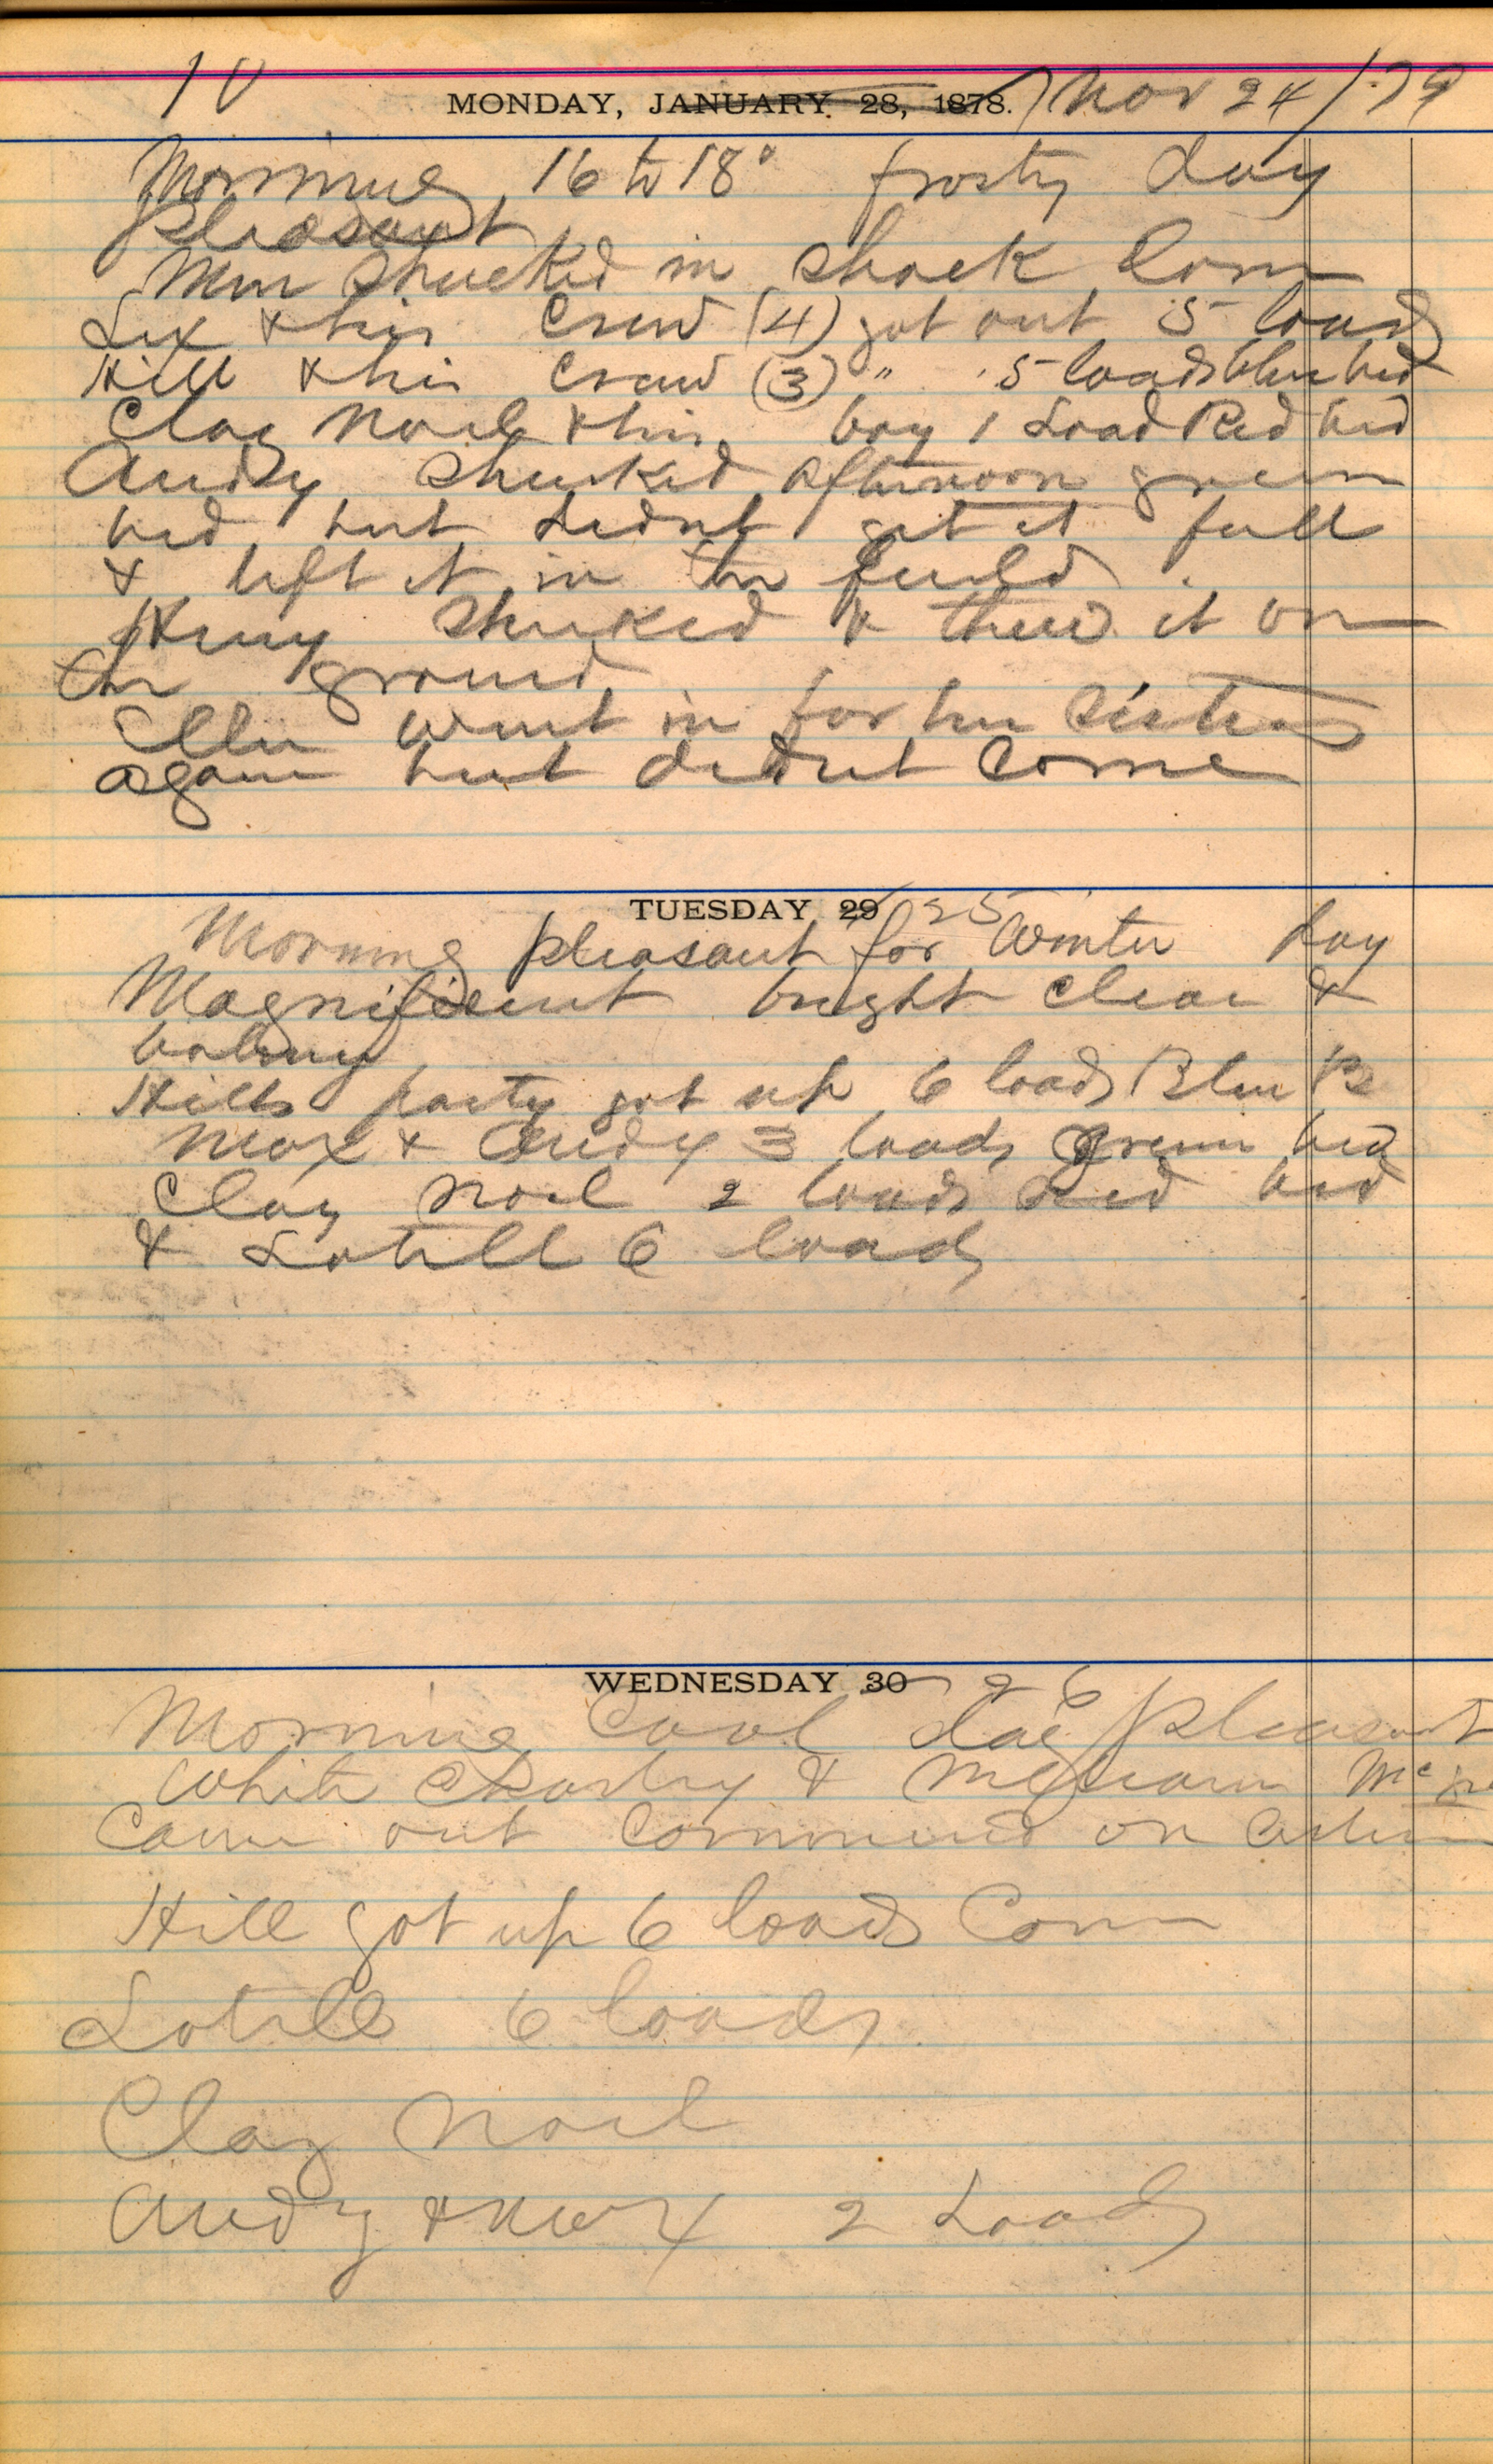 10
MONDAY, JANUARY 28, 1878. Nov 24/79
Morning 16 to 18° frosty day
pleasant
Men shucked in shock Corn
Lex & his Crew (4) got out 5 loads
Hill & his Crew (3) " 5 loads blue bed
Clay Noel & his boy 1 Load Red bed
Andy shucked afternoon green
bed but didnt get it full
& left it in the field.
Henry shucked & threw it on
the ground
Ellen went in for her sisters
again but didnt Come
TUESDAY 29 25
Morning pleasant for Winter day
Magnificent bright clear &
balmy
Hills party got up 6 loads Blue B
Max & Andy 3 loads green bed
Clay Noel 2 loads Red bed
& Lotell 6 loads
WEDNESDAY 30 26
Morning Cool day pleasant
White Charley & Mc
Came out Commenced on
Hill got up 6 loads Corn
Lotell 6 loads
Clay Noel
Andy & Max 2 Loads